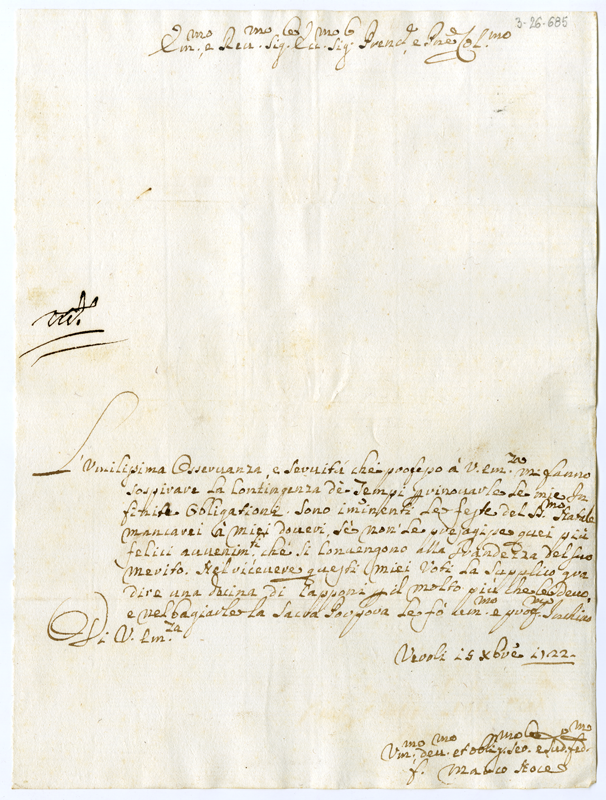 3-26-685
Em.mo e Reu.mo Sig.le Sig. Prenc.e e Prōe Col.mo
L'Vmilissima Osseruanza, e Seruitù che professo à V. Em.za mi fanno
sospirare la Contingenza dè Tempi p rinouarle le mie In
finite Obligationi. Sono iminenti le feste del S.mo Natale
mancarei à miei doueri, sè non le presagisse quei più
felici auuenim.ti chè si conuengono alla Grandezza del suo
merito. Nel riceuere questi miei Voti la Supplico gra
dire una decina di Capponi p il molto più che le Deuo,
e nel bagiarle la Sacra Porpora le fò um.mo e prof. Inchino
Di V. Em.za
Veroli 15 Xbre 1722
Vm.mo deu.mo et obb.mo Seo. e
f. Marco